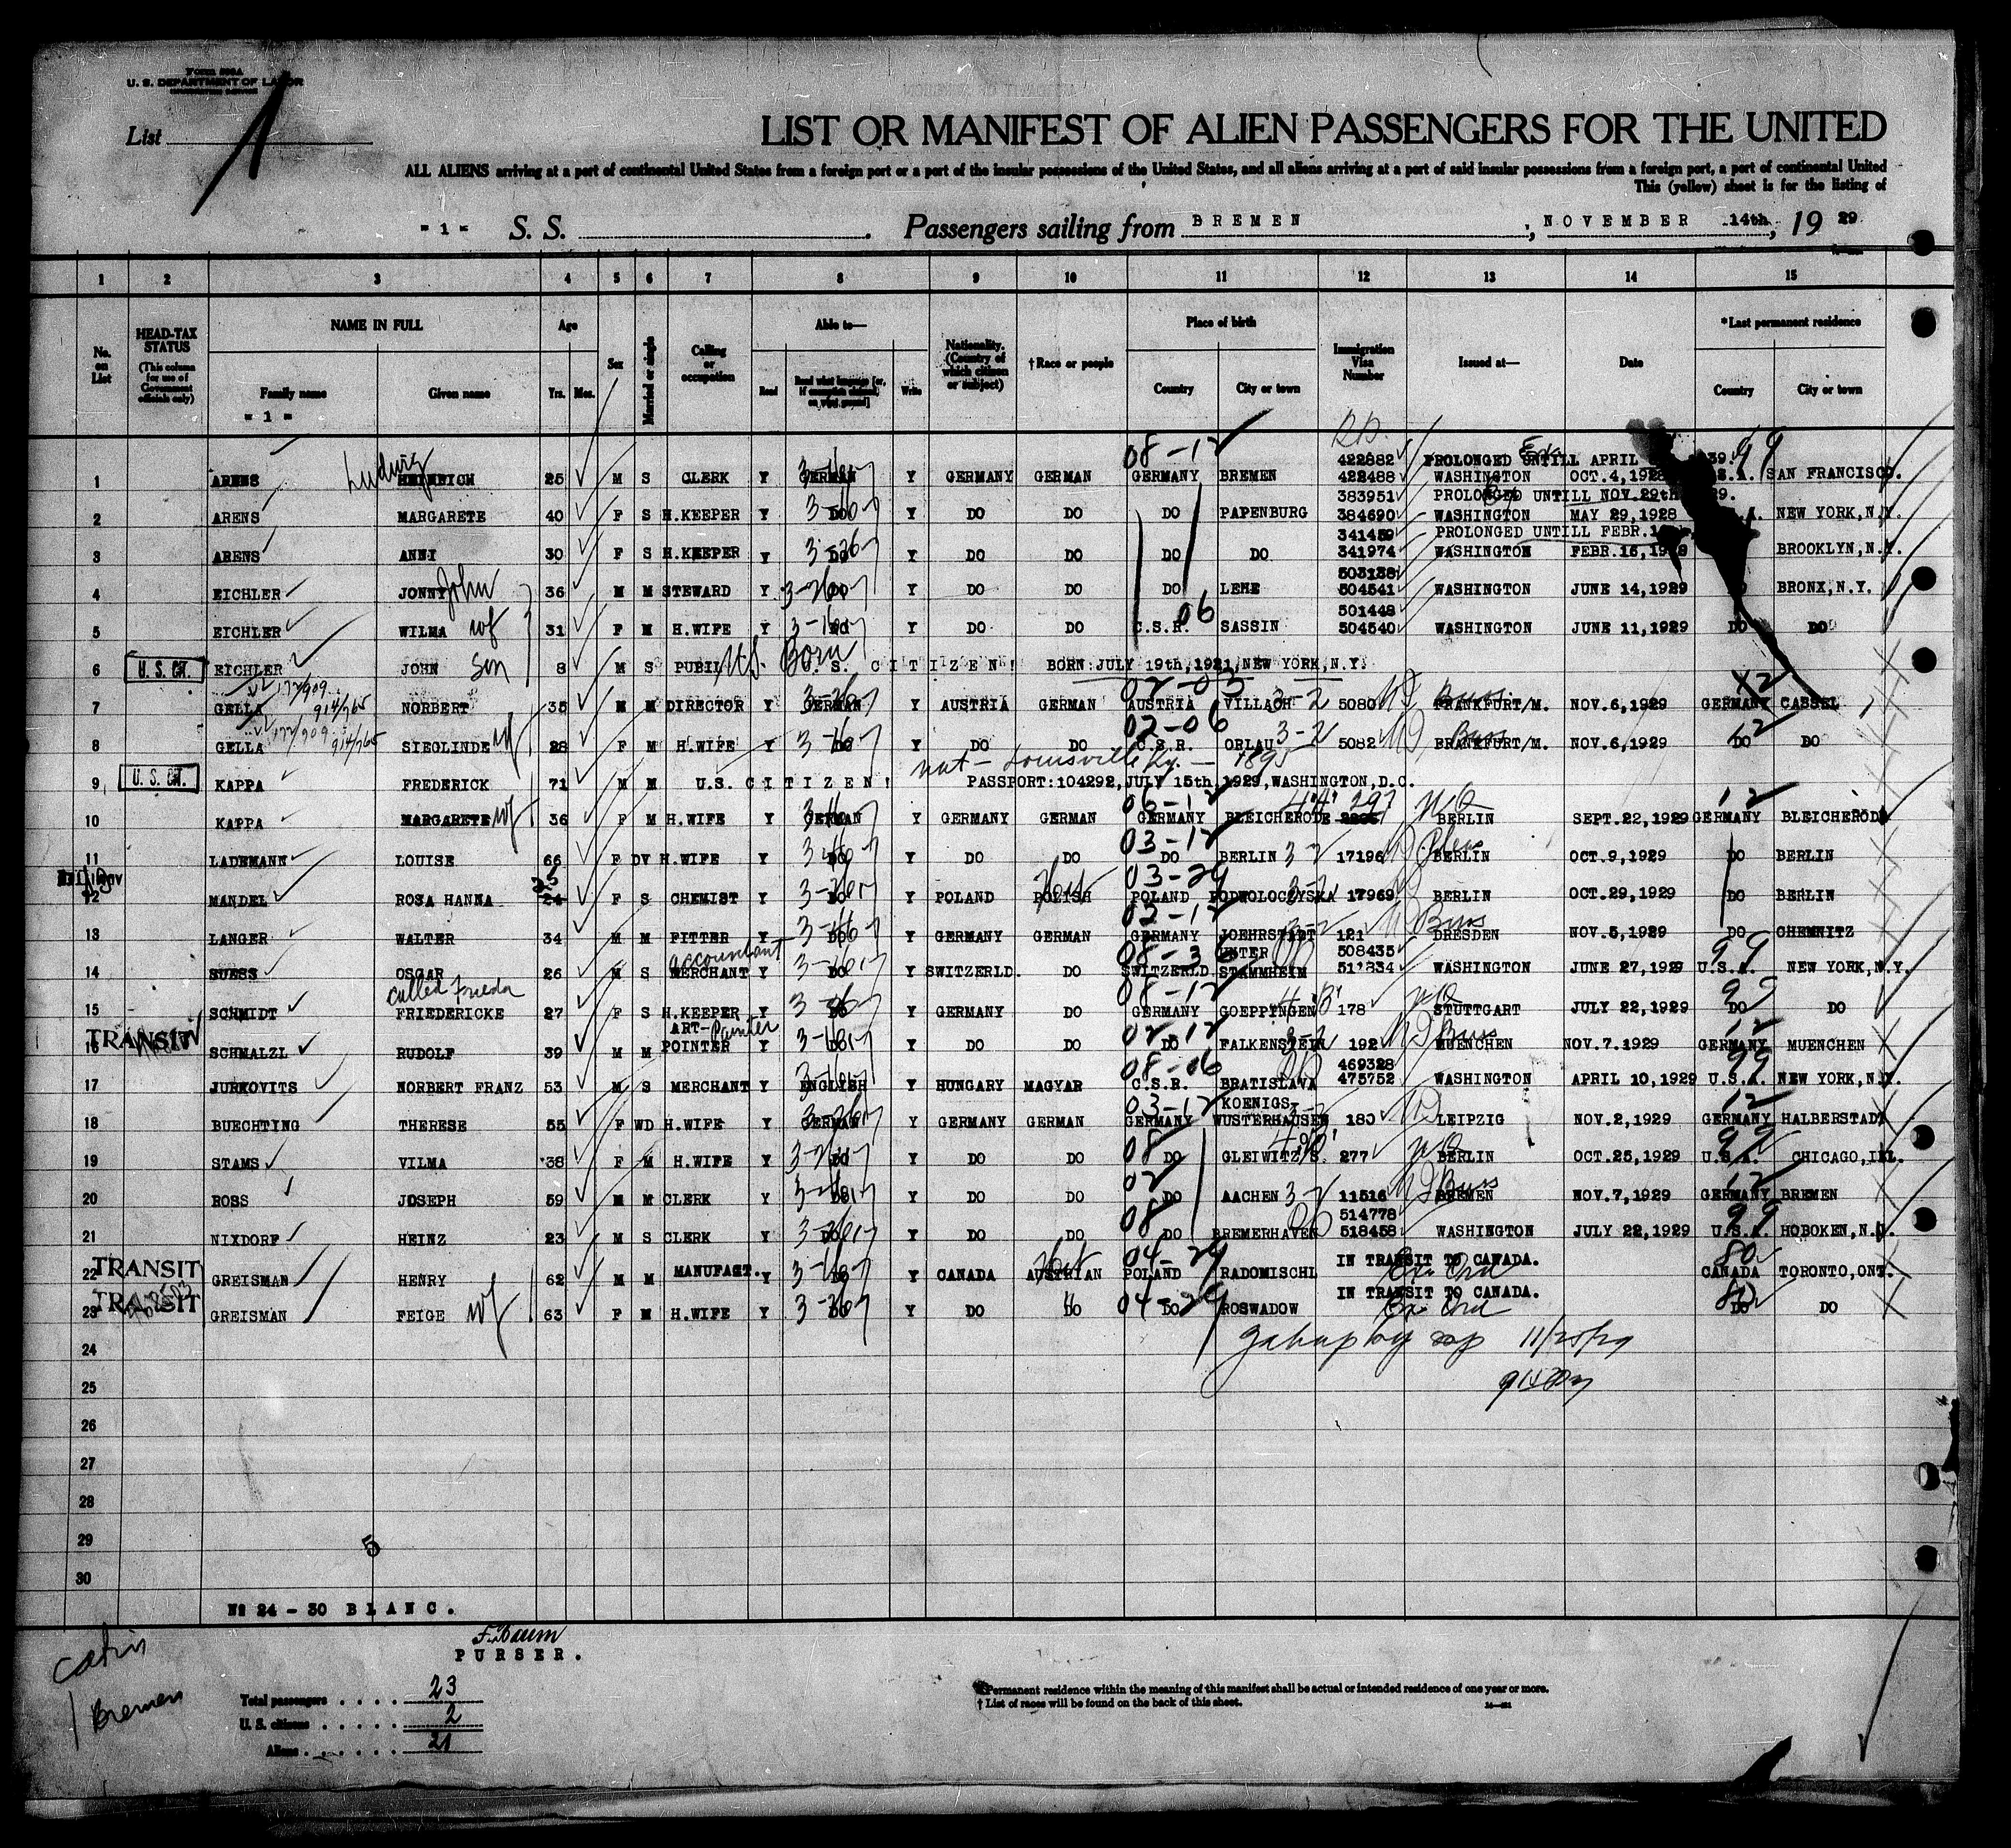 Form 500A
U. S. DEPARTMENT OF LABOR
List 1
LIST OR MANIFEST OF ALIEN PASSENGERS FOR THE UNITED
ALL ALIENS arriving at a port of continental United States from a foreign port or a port of the insular possessions of the United States, and all aliens arriving at a port of said insular possessions from a foreign port, a port of continental United
This (yellow) sheet is for the listing of
= 1 = S. S. Passengers sailing from BREMEN, NOVEMBER 14th, 19 29
1 2 3 4 5 6 7 8 9 10 11 12 13 14 15
No. on List HEAD-TAX STATUS (This column for use of Government officials only) NAME IN FULL Family name Given name Age Yrs. Mos. Sex Married or single Calling or occupation Able to— Read Read what language [or, if exemption claimed, on what ground] Write Nationality. (Country of which citizen or subject) †Race or people Place of birth Country City or town Immigration Visa Number Issued at— Date *Last permanent residence Country City or town
= 1 =
08-12 422882 PROLONGED UNTILL APRIL 99
1 ARENS Ludwig HEINRICH 25 M S CLERK Y GERMAN Y GERMANY GERMAN GERMANY BREMEN 422488 WASHINGTON OCT.4,1928 SAN FRANCISCO.
383951 PROLONGED UNTILL NOV.29th
2 ARENS MARGARETE 40 F S H.KEEPER Y DO Y DO DO DO PAPENBURG 384690 WASHINGTON MAY 29,1928 NEW YORK,N.Y.
341459 PROLONGED UNTILL FEBR.
3 ARENS ANNI 30 F S H.KEEPER Y DO Y DO DO DO DO 341974 WASHINGTON FEBR.16,19 BROOKLYN,N.Y.
503138
4 EICHLER JONNY John 36 M M STEWARD Y DO Y DO DO DO LEHE 504541 WASHINGTON JUNE 14,1929 BRONX,N.Y.
06 501448
5 EICHLER WILMA wf 31 F M H.WIFE Y DO Y DO DO C.S.R. SASSIN 504540 WASHINGTON JUNE 11,1929 DO DO
6 U. S. CIT. EICHLER JOHN son 8 M S PUPIL U.S. Born U.S. CITIZEN! BORN:JULY 19th,1921,NEW YORK,N.Y.
177/909 02-03
7 GELLA 914/765 NORBERT 35 M M DIRECTOR Y GERMAN Y AUSTRIA GERMAN AUSTRIA VILLACH 3-2 5080 FRANKFURT/M. NOV.6,1929 GERMANY CASSEL
177/909 914/765 02-06 12
8 GELLA SIEGLINDE wf 28 F M H.WIFE Y DO Y DO DO C.S.R. ORLAU 3-2 5082 FRANKFURT/M. NOV.6,1929 DO DO
nat- Louisville Ky. - 1895
9 U. S. CIT. KAPPA FREDERICK 71 M M U.S. CITIZEN! PASSPORT:104292,JULY 15th,1929,WASHINGTON,D.C.
06-12 297 12
10 KAPPA MARGARETE wf 36 F M H.WIFE Y GERMAN Y GERMANY GERMAN GERMANY BLEICHERODE BERLIN SEPT.22,1929 GERMANY BLEICHERODE
03-12
11 LADEMANN LOUISE 66 F DV H.WIFE Y DO Y DO DO DO BERLIN 3-2 17196 BERLIN OCT.9,1929 DO BERLIN
25 03-29
12 MANDEL ROSA HANNA 24 F S CHEMIST Y DO Y POLAND POLISH POLAND PODWOLOCZYSKA 17969 BERLIN OCT.29,1929 DO BERLIN
02-12
13 LANGER WALTER 34 M M FITTER Y DO Y GERMANY GERMAN GERMANY JOEHRSTADT 121 DRESDEN NOV.5,1929 DO CHEMNITZ
accountant 08-36 UNTER 508435 99
14 SUESS OSCAR 26 M S MERCHANT Y DO Y SWITZERLD. DO SWITZERLD STAMMHEIM 511834 WASHINGTON JUNE 27,1929 U.S.A. NEW YORK,N.Y.
called Frieda 08-12 99
15 SCHMIDT FRIEDERICKE 27 F S H.KEEPER Y DO Y GERMANY DO GERMANY GOEPPINGEN 178 STUTTGART JULY 22,1929 DO DO
TRANSIT ART- Painter 02-12 12
16 SCHMALZL RUDOLF 39 M M POINTER Y DO Y DO DO DO FALKENSTEIN 192 MUENCHEN NOV.7.1929 GERMANY MUENCHEN
08-06 469328 99
17 JURKOVITS NORBERT FRANZ 53 M S MERCHANT Y ENGLISH Y HUNGARY MAGYAR C.S.R. BRATISLAVA 475752 WASHINGTON APRIL 10,1929 U.S.A. NEW YORK,N.Y.
03-12 KOENIGS- 12
18 BUECHTING THERESE 55 F WD H.WIFE Y GERMAN Y GERMANY GERMAN GERMANY WUSTERHAUSEN 180 LEIPZIG NOV.2,1929 GERMANY HALBERSTADT
08 99
19 STAMS VILMA 38 F M H.WIFE Y DO Y DO DO DO GLEIWITZ/S. 277 BERLIN OCT.25,1929 U.S.A. CHICAGO,ILL.
02 12
20 ROSS JOSEPH 59 M M CLERK Y DO Y DO DO DO AACHEN 3-2 11516 BREMEN NOV.7,1929 GERMANY BREMEN
08 514778 99
21 NIXDORF HEINZ 23 M S CLERK Y DO Y DO DO DO BREMERHAVEN 518458 WASHINGTON JULY 22,1929 U.S.A. HOBOKEN,N.J.
TRANSIT 04-29 IN TRANSIT TO CANADA. 80
22 GREISMAN HENRY 62 M M MANUFACT. Y DO Y CANADA AUSTRIAN POLAND RADOMISCHL CANADA TORONTO,ONT.
TRANSIT 04-29 IN TRANSIT TO CANADA. 80
23 GREISMAN FEIGE wf 63 F M H.WIFE Y DO Y DO DO ROSWADOW DO DO
24
25
26
27
28
29
5
30
No 24 - 30 BLANC.
F. Baum
PURSER.
Cabin
Bremen
Total passengers 23
U. S. citizens 2
Aliens 21
*Permanent residence within the meaning of this manifest shall be actual or intended residence of one year or more.
† List of races will be found on the back of this sheet.